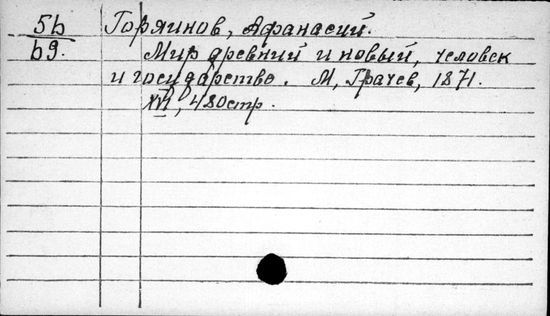 5b Горяинов, Афанасий.
b9. Мир древний и новый, человек
и государство. М, Грачев, 1871.
XVI, 480стр.